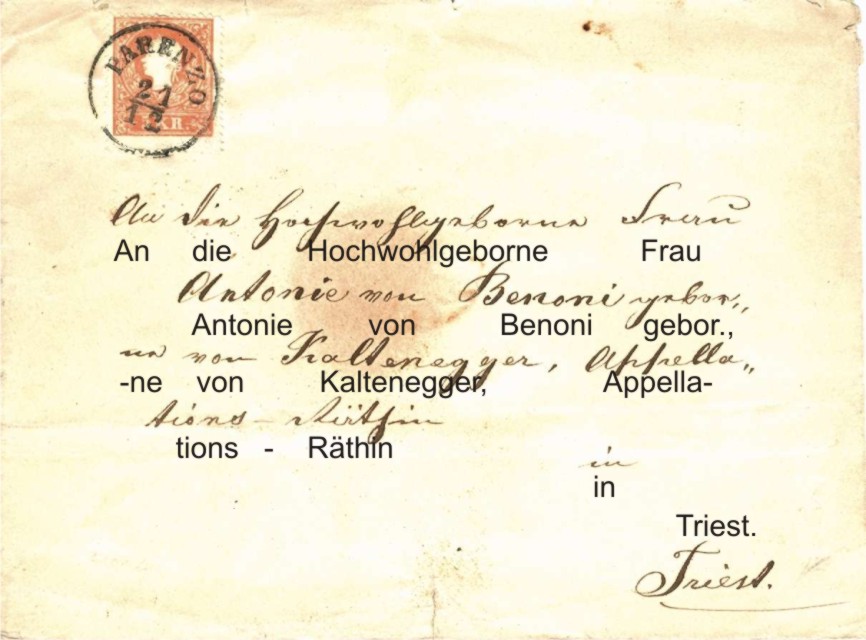 PARENZO
21
12
5 KR.
An die Hochwohlgeborne Frau
An die Hochwohlgeborne Frau
Antonie von Benoni gebor„
Antonie von Benoni gebor.,
ne von Kaltenegger, Appella„
-ne von Kaltenegger, Appella-
tions - Räthin
tions - Räthin
in
in
Triest.
Triest.